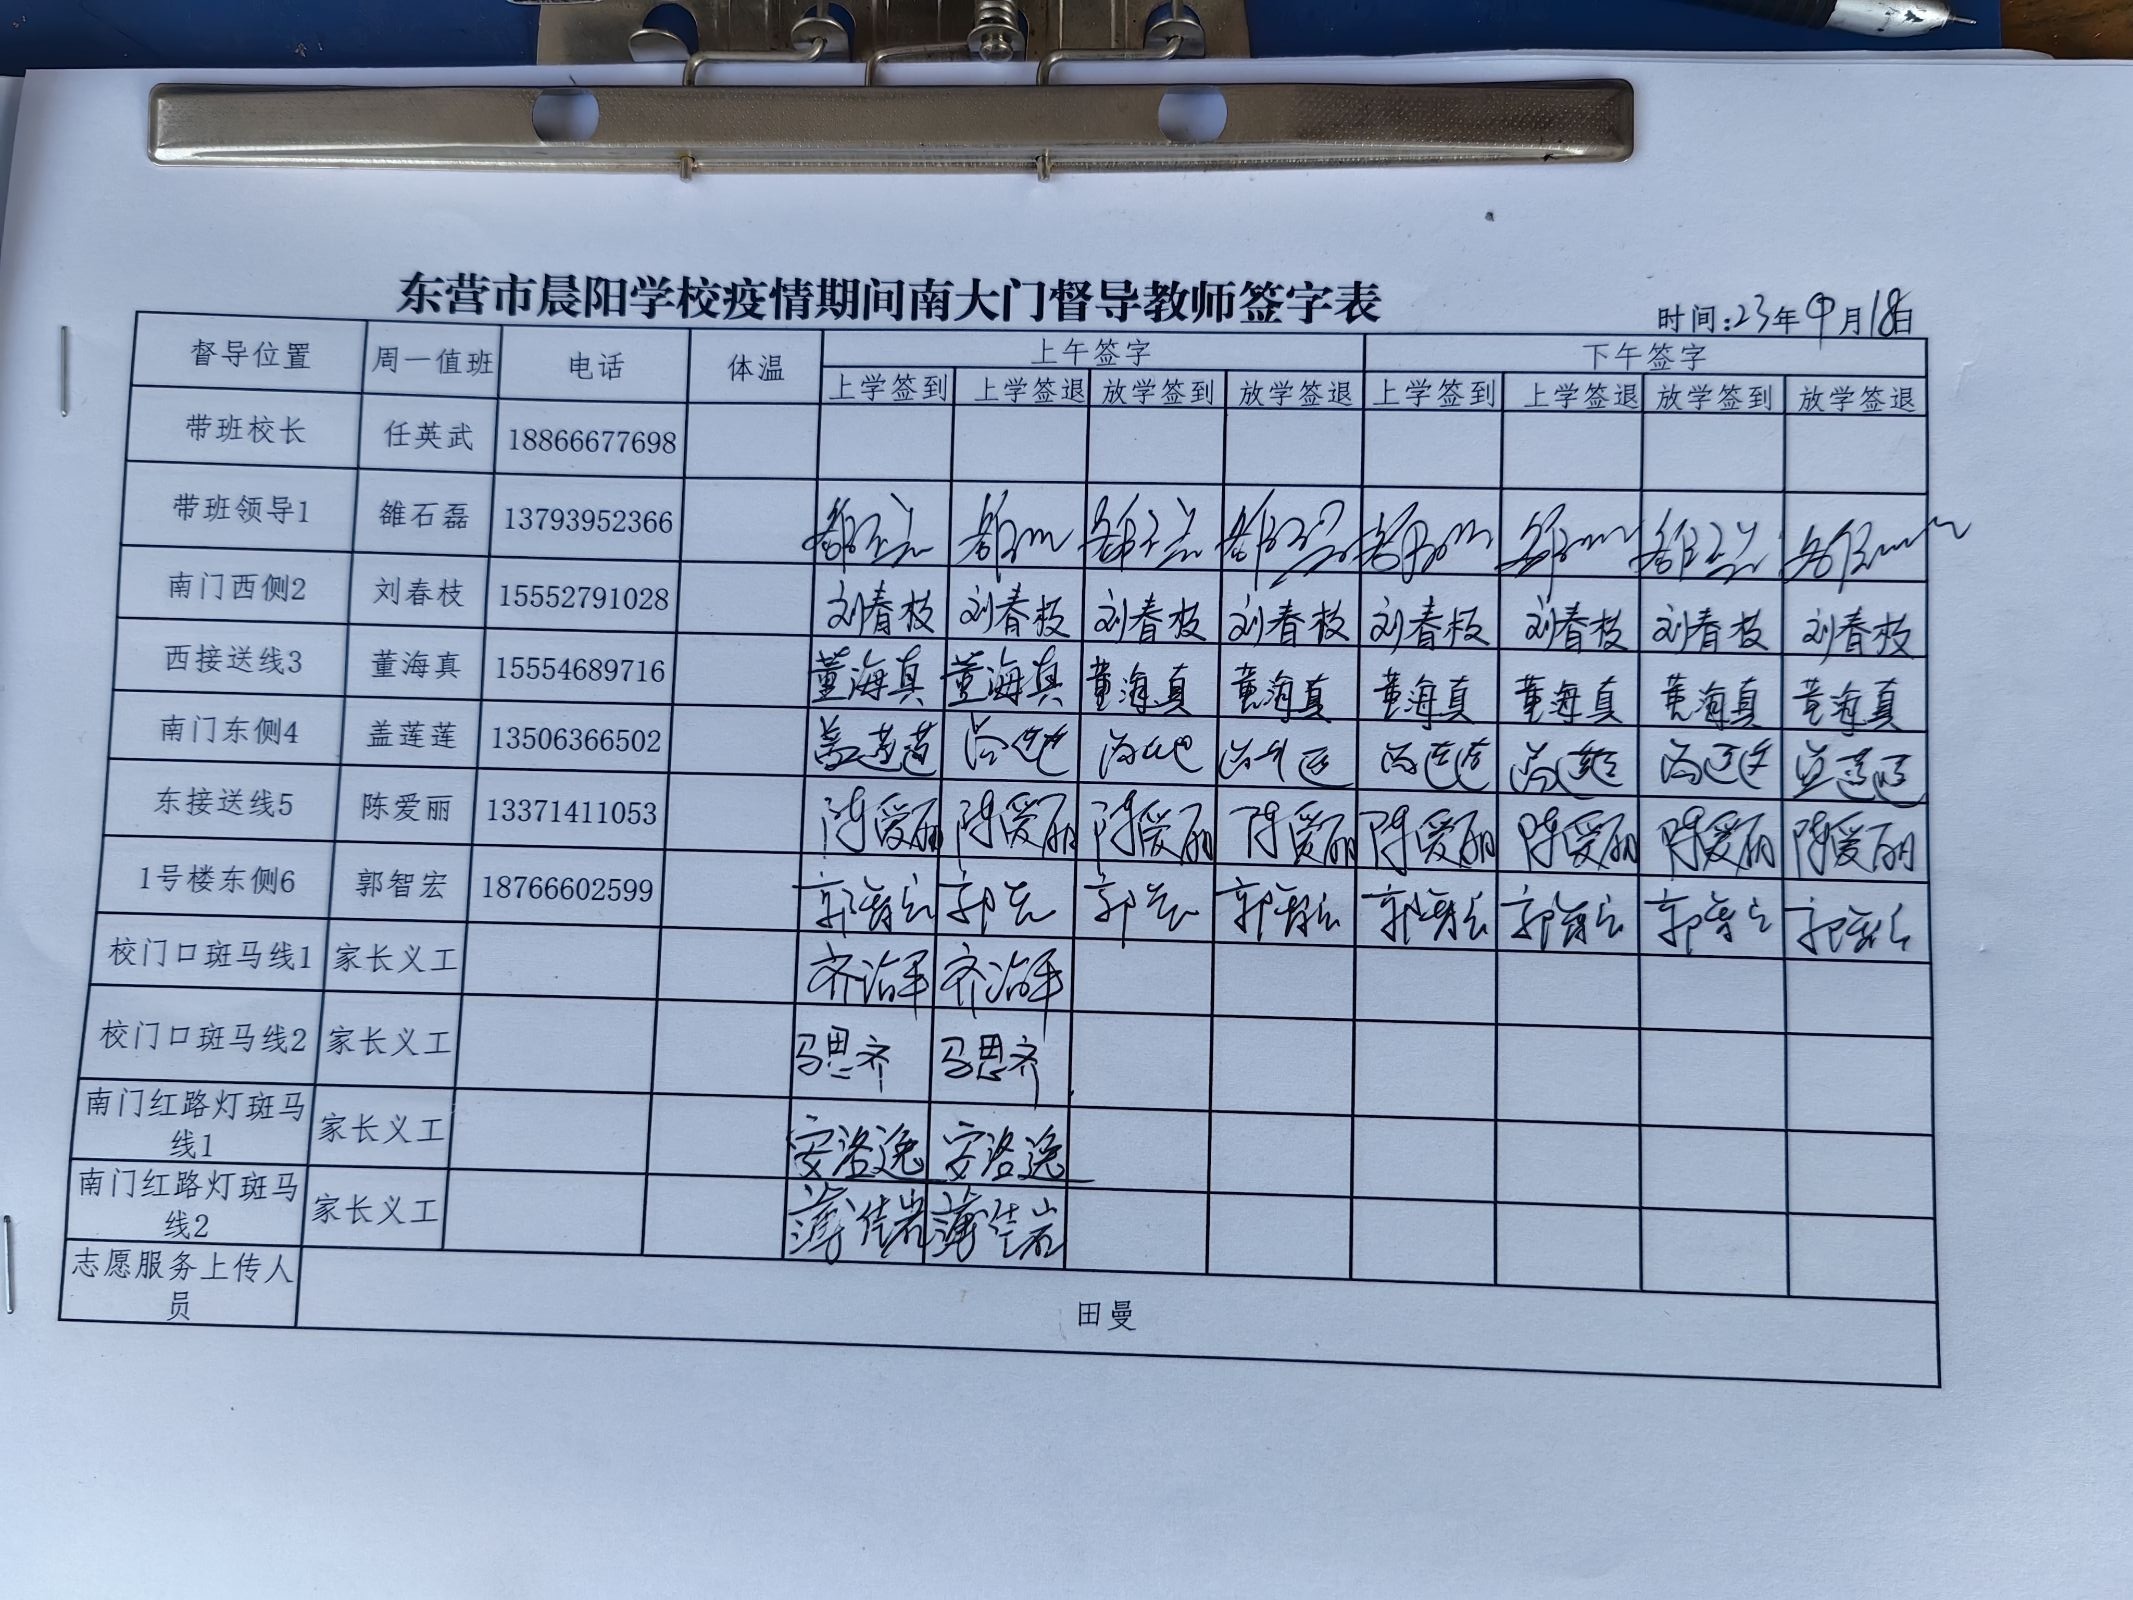 东营市晨阳学校疫情期间南大门督导教师签字表
时间:23年9月18日
督导位置 周一值班 电话 体温 上午签字 下午签字
上学签到 上学签退 放学签到 放学签退 上学签到 上学签退 放学签到 放学签退
带班校长 任英武 18866677698
带班领导1 雒石磊 13793952366
南门西侧2 刘春枝 15552791028 刘春枝 刘春枝 刘春枝 刘春枝 刘春枝 刘春枝 刘春枝 刘春枝
西接送线3 董海真 15554689716 董海真 董海真 董海真 董海真 董海真 董海真 董海真 董海真
南门东侧4 盖莲莲 13506366502 盖莲莲
东接送线5 陈爱丽 13371411053 陈爱丽 陈爱丽 陈爱丽 陈爱丽 陈爱丽 陈爱丽 陈爱丽 陈爱丽
1号楼东侧6 郭智宏 18766602599 郭智宏 郭宏 郭宏 郭智宏 郭智宏 郭智宏 郭智宏 郭智宏
校门口斑马线1 家长义工 齐治军 齐治军
校门口斑马线2 家长义工 马思齐 马思齐
南门红路灯斑马
线1 家长义工 安洛逸 安洛逸
南门红路灯斑马
线2 家长义工 薄佳岩 薄佳岩
志愿服务上传人
员 田曼